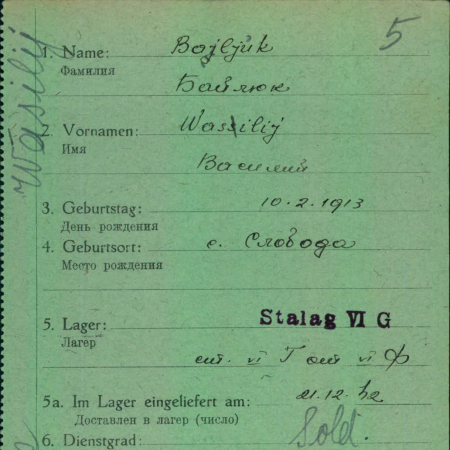 5
1. Name: Bojljuk
Фамилия
Байлюк
2. Vornamen: Wassilij
Имя
Василий
Wasilij
3. Geburtstag: 10.2.1913
День рождения
4. Geburtsort: с. Слобода
Место рождения
5. Lager: Stalag VI G
Лагер
шт. VI Г ашт VI Ф
5a. Im Lager eingeliefert am: 21.12.42
Доставлен в лагер (число)
6. Dienstgrad: Sold.